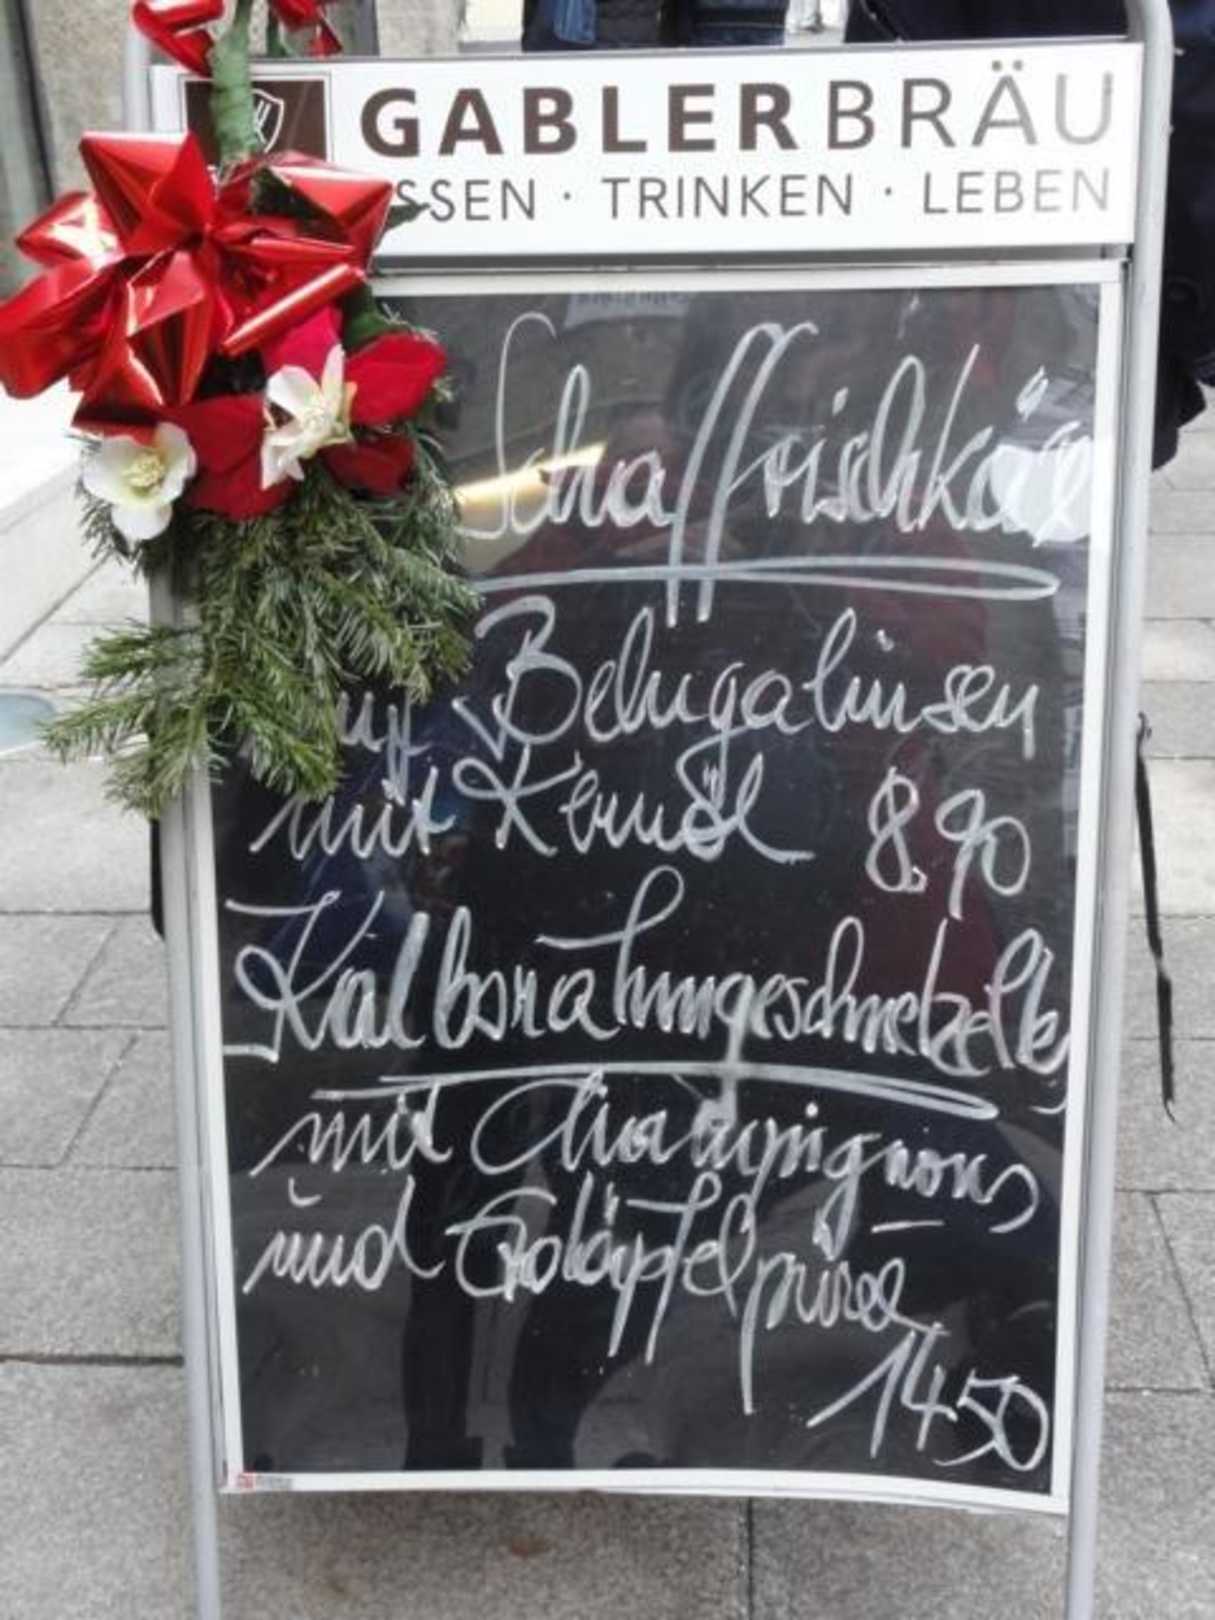 GABLERBRÄU
ESSEN · TRINKEN · LEBEN
Schaffrischkäse
auf Belugalinsen
mit Kernöl 8.90
Kalbsrahmgeschnetzeltes
mit Champignons
und Erdäpfelpüree
14 50